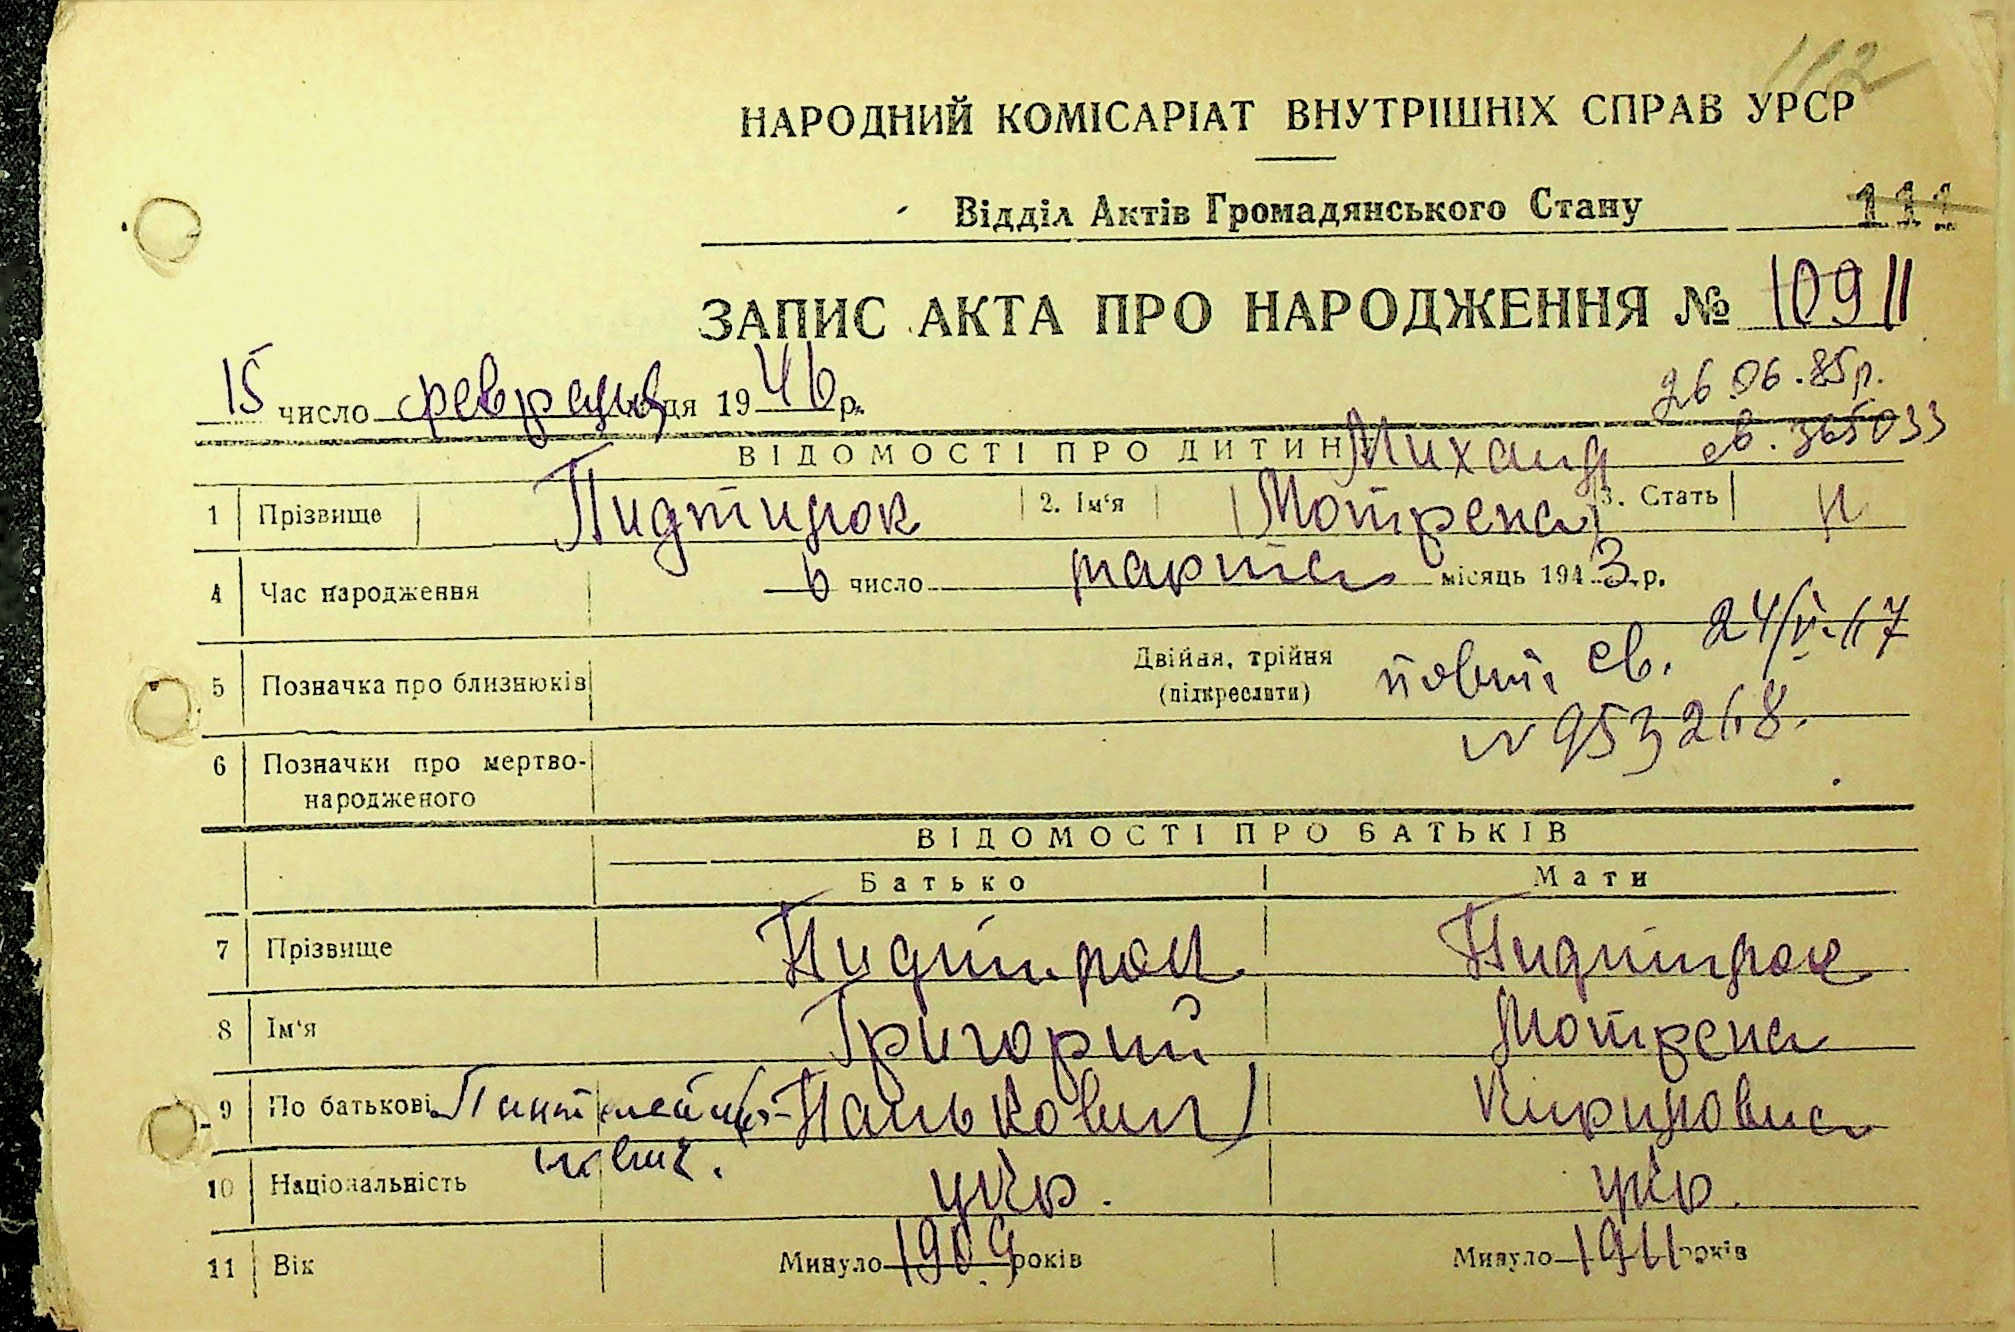 112
НАРОДНИЙ КОМІСАРІАТ ВНУТРІШНІХ СПРАВ УРСР
Відділ Актів Громадянського Стану 111
ЗАПИС АКТА ПРО НАРОДЖЕННЯ № 109
26.06.85р.
15 число февраля 1946 р.
св. 365033
ВІДОМОСТІ ПРО ДИТИНУ Михаил
1 Прізвище Пидтипок 2. Ім'я Мотрена 3. Стать
4 Час народження 6 число марта місяць 1943 р.
5 Позначка про близнюків Двійня, трійня (підкреслити)
повт. св. 24/V-67
N 953268.
6 Позначки про мертвонародженого
ВІДОМОСТІ ПРО БАТЬКІВ
Батько Мати
7 Прізвище
8 Ім'я Григорий Мотрена
9 По батькові Панькович Кириловна
10 Національність укр. укр.
11 Вік Минуло 1909 років Минуло 1911 років